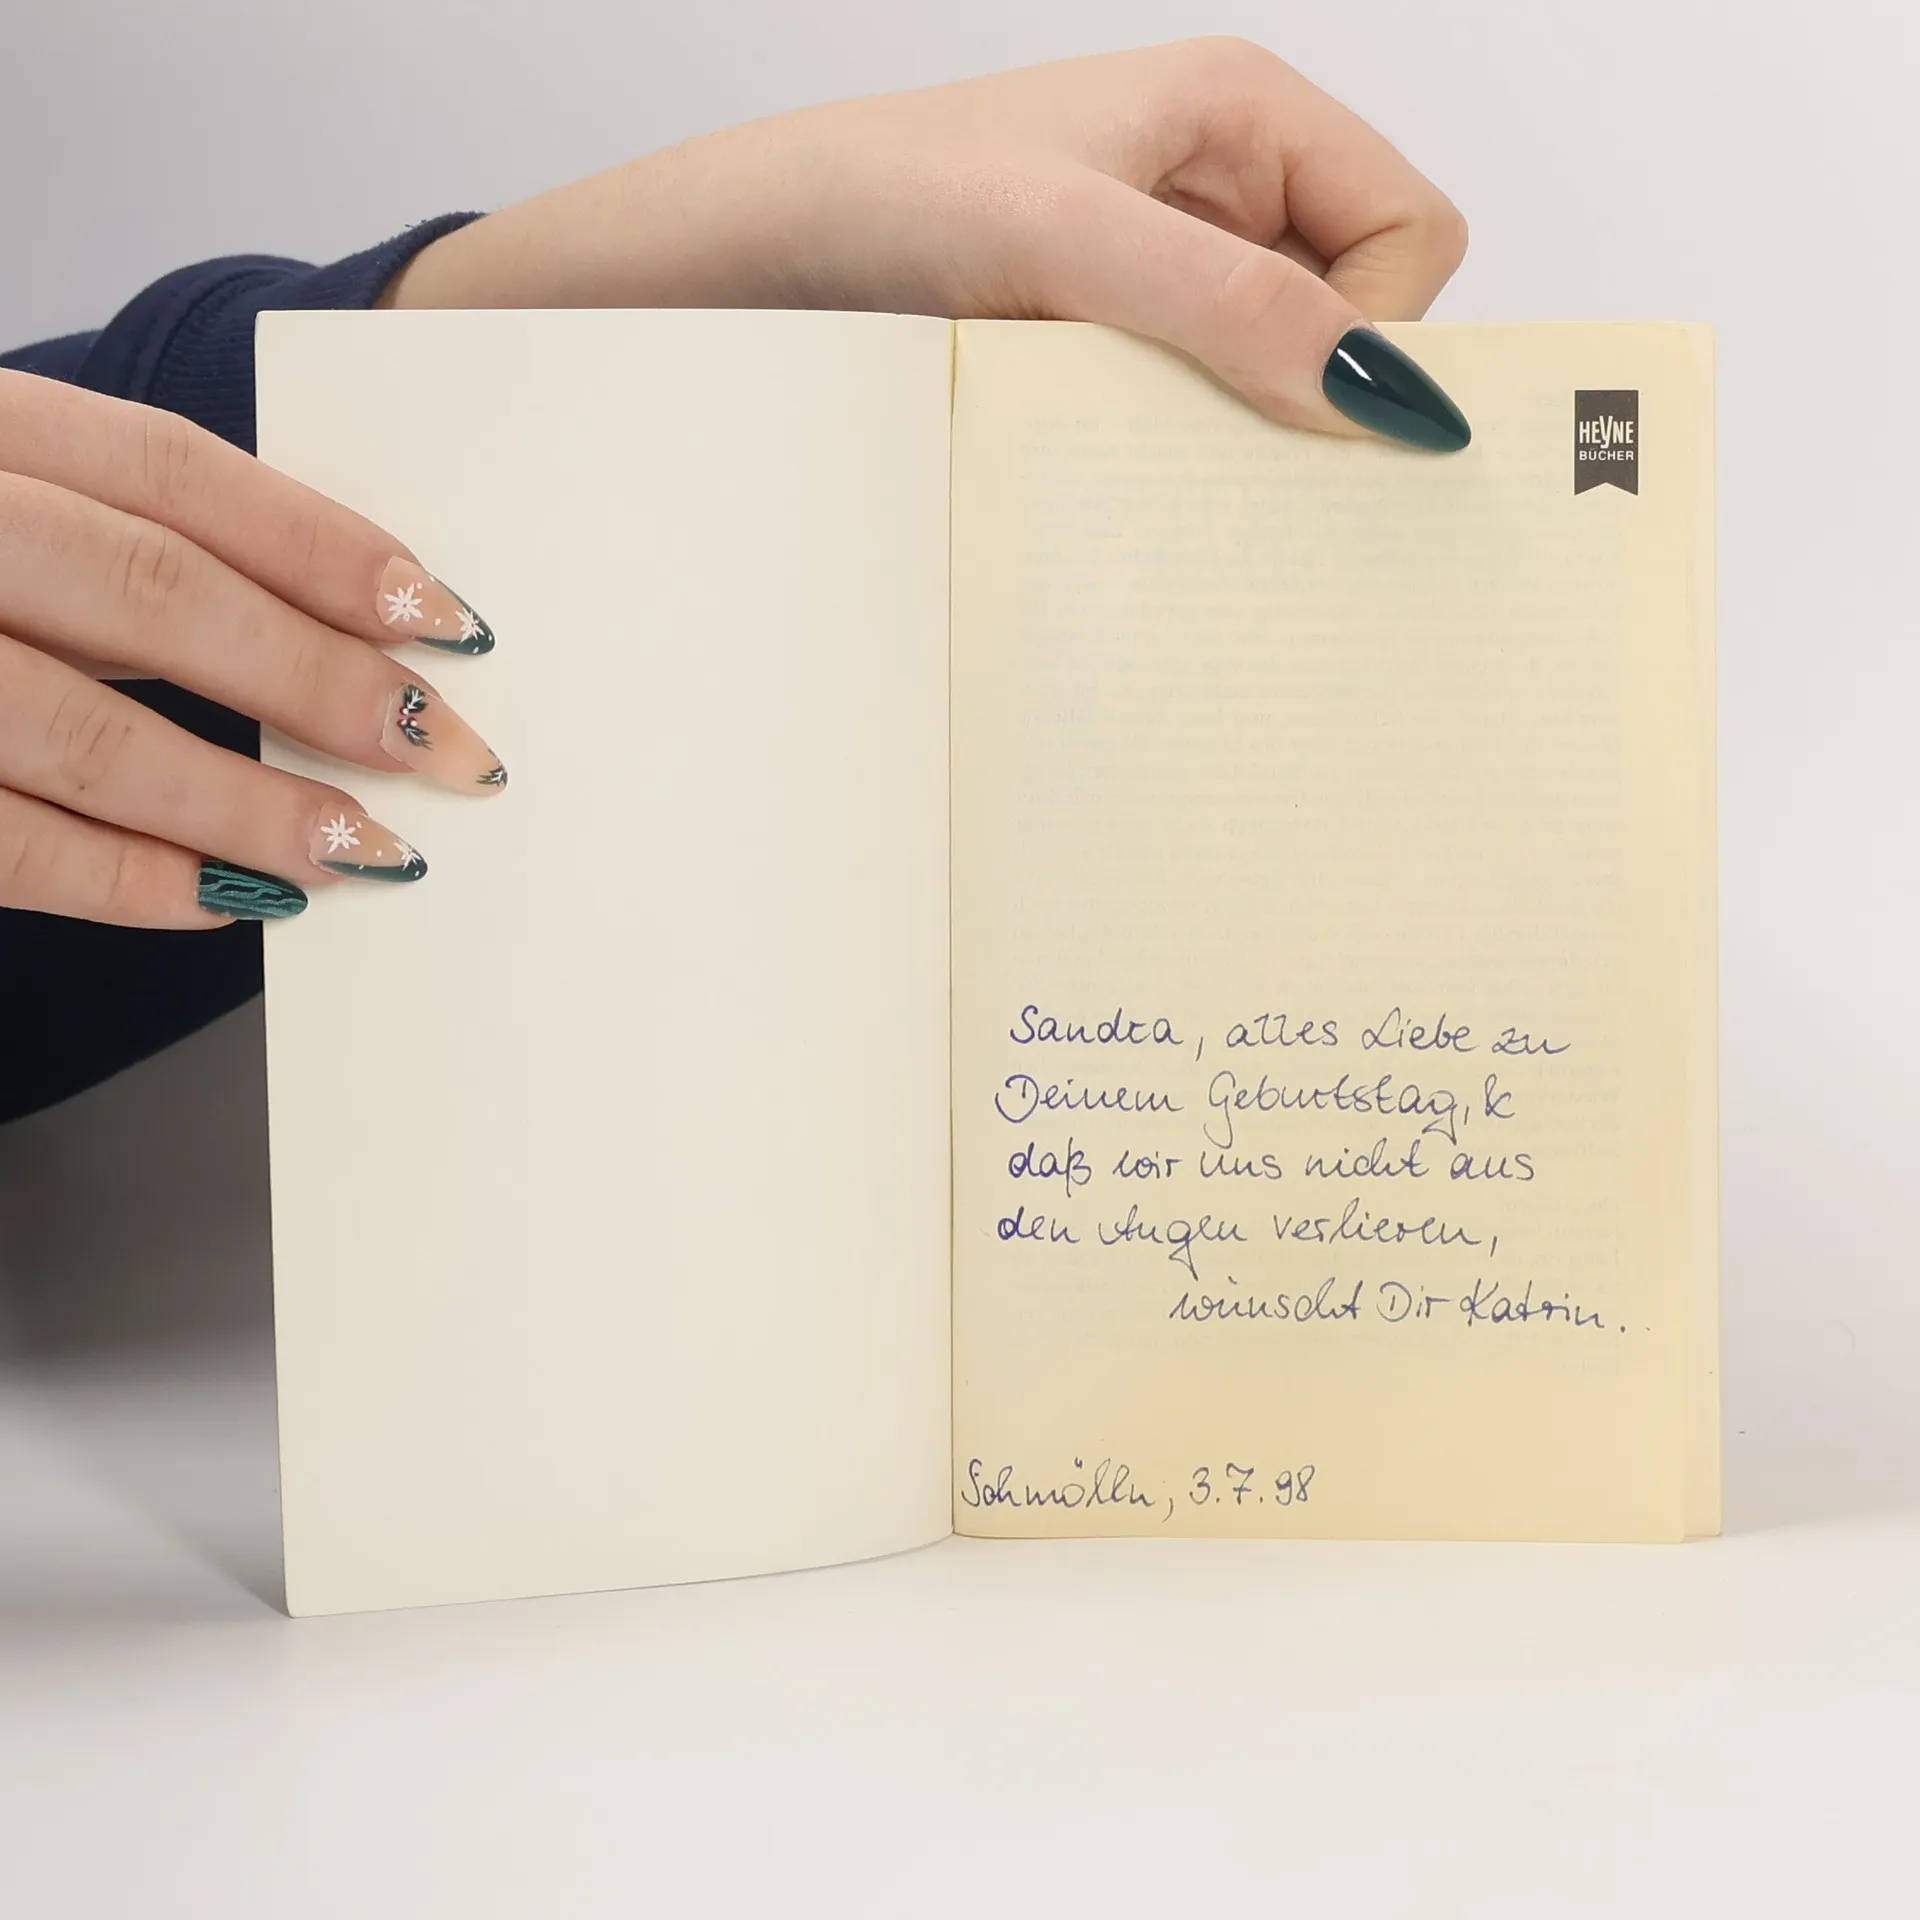 HEYNE
BÜCHER
Sandra, alles Liebe zu
Deinem Geburtstag, &
daß wir uns nicht aus
den Augen verlieren,
wünscht Dir Katrin.
Schmölln, 3.7.98